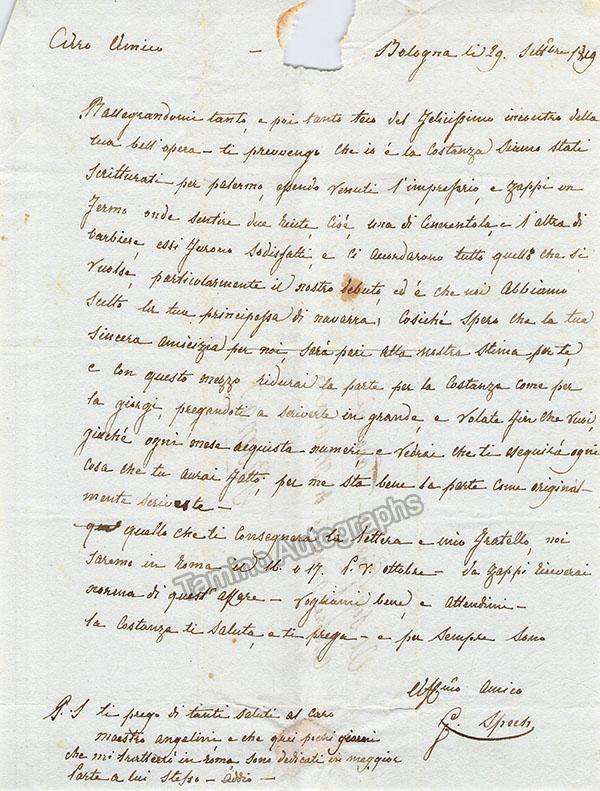 Caro Amico - Bologna li 29. Sett.bre 1829
Rallegrandomi tanto, e poi tanto teco del felicissimo incontro della
tua bell'opera - ti prevvengo che io è la Costanza siamo stati
scritturati per palermo, essendo venuti l'impresario, e Zappi in
fermo onde sentire due recite, cioè, una di Cenerentola, e l'altra di
barbiere, essi furono sodisfatti, e ci acordarono tutto quello che si
vuolse, particolarmente il nostro debutò, ed è che noi abbiamo
scelto la tua principessa di navarra, cosiché spero che la tua
sincera amicizia per noi, sarà pari alla nostra stima per te,
e con questo mezzo ridurai la parte per la Costanza come per
la giorgi, pregandoti a scriverle in grande, e volate fin che vuoi,
giaché ogni mese acquista numeri e vedrai che ti eseguirà ogni
cosa che tu aurai fatto, per me sta bene la parte come original-
mente scriveste -
quello che ti consegnerà la lettera e mio fratello, noi
saremo in Roma li 16. o 17. P. V. ottobre - da Zappi riceverai
norma di quest'affare - Vogliami bene, e attendimi -
la Costanza ti saluta, e ti prega - e per sempre sono
L'Aff.mo Amico
G. Spech
P. S ti prego di tanti saluti al caro
maestro angelini e che quei pochi giorni
che mi tratterò in roma, sono dedicati in maggior
parte a lui stesso - addio -
Tamino Autographs